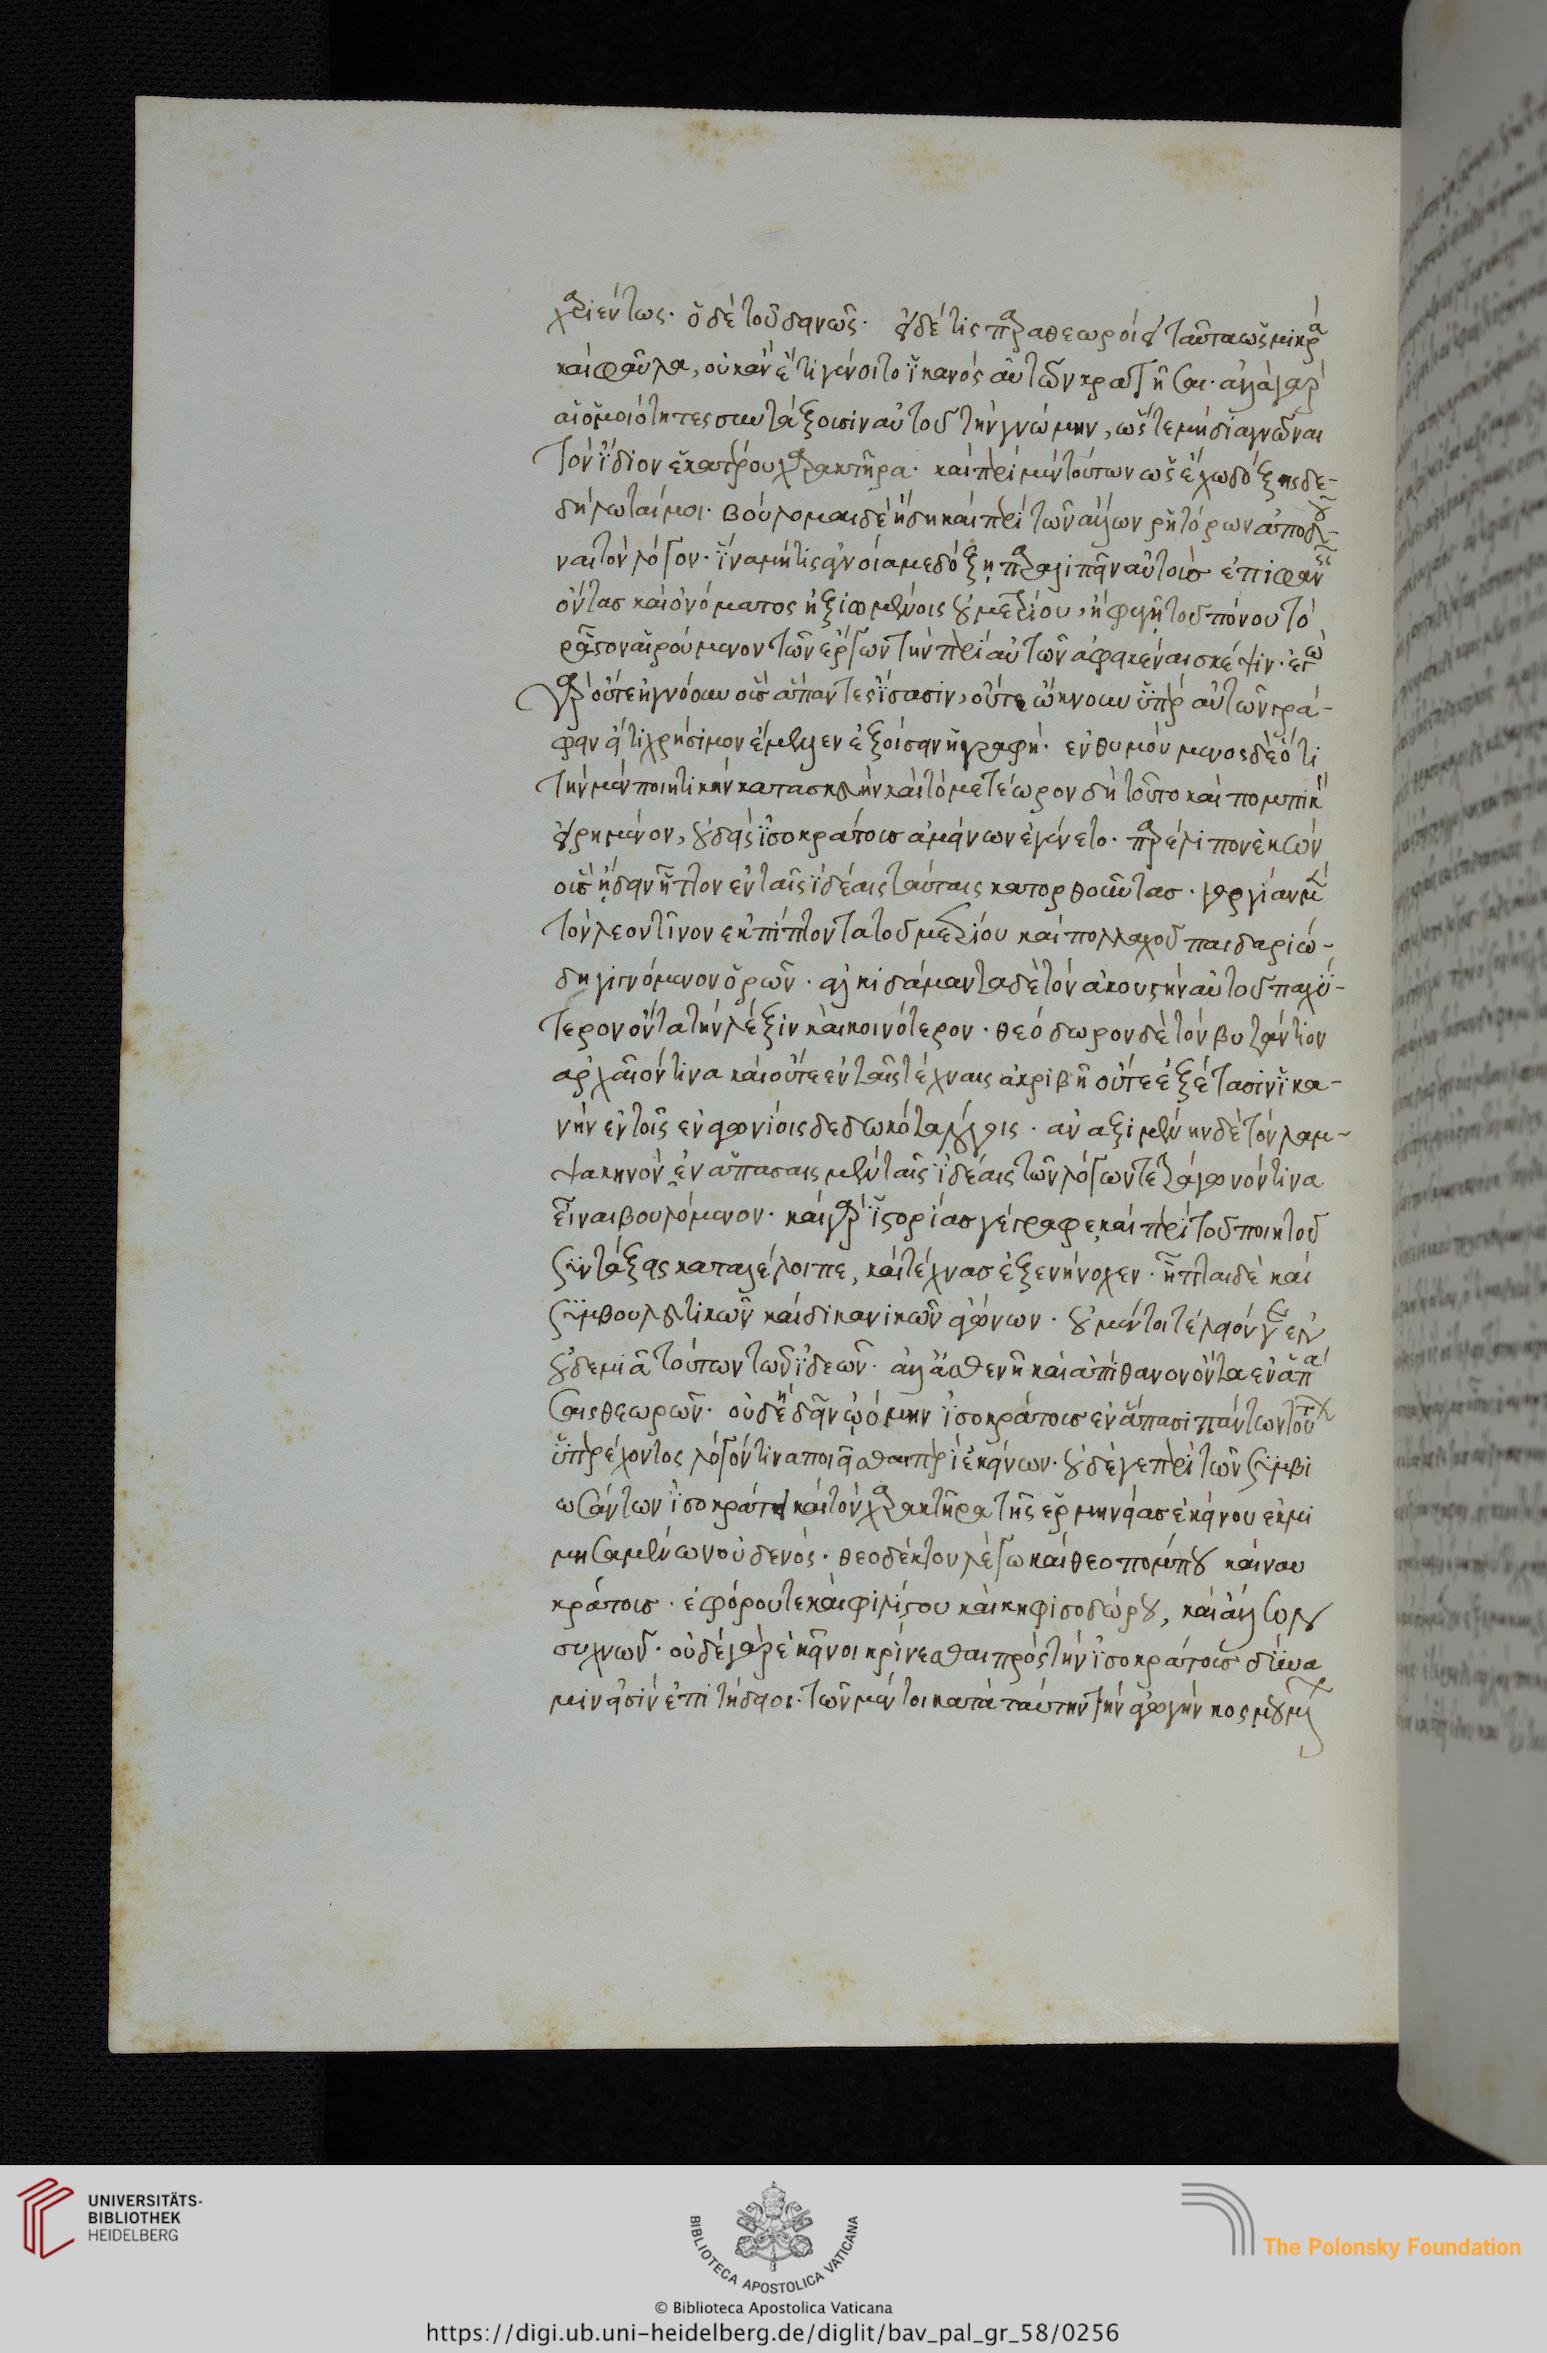 χαριέντως· ὁ δὲ τοῦ δεινῶς· εἰ δέ τις παραθεωροίη ταῦτα ὡς μικρὰ
καὶ φαῦλα, οὐκ ἂν ἔτι γένοιτο ἱκανὸς αὐτῶν κρατῆσαι· ἀλλὰ γὰρ
αἱ ὁμοιότητες συνταράξουσιν αὐτοῦ τὴν γνώμην, ὥστε μὴ διαγνῶναι
τὸν ἴδιον ἑκατέρου χαρακτῆρα· καὶ περὶ μὲν τούτων ὡς ἔχω δόξης δε-
δήλωταί μοι· βούλομαι δὲ ἤδη καὶ περὶ τῶν ἄλλων ῥητόρων ἀποδοῦ-
ναι τὸν λόγον· ἵνα μή τις ἀγνοίᾳ με δόξῃ παραλιπεῖν αὐτοὺς ἐπιφανεῖς
ὄντας καὶ ὀνόματος ἠξιωμένους οὐ μετρίου, ἢ φυγῇ τοῦ πόνου τὸ
ῥᾷστον αἱρούμενον τῶν ἔργων τὴν περὶ αὐτῶν ἀφεικέναι σκέψιν· ἐγὼ
γὰρ οὔτε ἠγνόουν οὓς ἅπαντες ἴσασιν, οὔτε ὤκνουν ὑπὲρ αὐτῶν γρά-
φειν εἴ τι χρήσιμον ἔμελλεν ἐξοίσειν ἡ γραφή· ἐνθυμούμενος δὲ ὅτι
τὴν μὲν ποιητικὴν κατασκευὴν καὶ τὸ μετέωρον δὴ τοῦτο καὶ πομπικὸν
εἰρημένον, οὐδεὶς ἰσοκράτους ἀμείνων ἐγένετο· παρέλιπον ἑκὼν
οὓς ᾔδειν ἧττον ἐν ταῖς ἰδέαις ταύταις κατορθοῦντας· γοργίαν μὲν
τὸν λεοντῖνον ἐκπίπτοντα τοῦ μετρίου καὶ πολλαχοῦ παιδαριώ-
δη γιγνόμενον ὁρῶν· ἀλκιδάμαντα δὲ τὸν ἀκουστὴν αὐτοῦ παχύ-
τερον ὄντα τὴν λέξιν καὶ κοινότερον· θεόδωρον δὲ τὸν βυζάντιον
ἀρχαῖόν τινα καὶ οὔτε ἐν ταῖς τέχναις ἀκριβῆ οὔτε ἐξέτασιν ἱκα-
νὴν ἐν τοῖς ἐναγωνίοις δεδωκότα λόγοις· ἀναξιμένην δὲ τὸν λαμ-
ψακηνὸν ἐν ἁπάσαις μὲν ταῖς ἰδέαις τῶν λόγων τετράγωνόν τινα
εἶναι βουλόμενον· καὶ γὰρ ἱστορίας γέγραφε, καὶ περὶ τοῦ ποιητοῦ
συντάξεις καταλέλοιπε, καὶ τέχνας ἐξενήνοχεν· ἧπται δὲ καὶ
συμβουλευτικῶν καὶ δικανικῶν ἀγώνων· οὐ μέντοι τέλειόν γε ἐν
οὐδεμιᾷ τούτων τῶν ἰδεῶν· ἀλλ' ἀσθενῆ καὶ ἀπίθανον ὄντα ἐν ἁπά
σαις θεωρῶν· οὐδὲ δεῖν ᾠόμην ἰσοκράτους ἐν ἅπασι πάντων τούτων
ὑπερέχοντος λόγον τινα ποιεῖσθαι περὶ ἐκείνων· οὐδέ γε περὶ τῶν συμβι
ωσάντων ἰσοκράτει καὶ τὸν χαρακτῆρα τῆς ἑρμηνείας ἐκείνου ἐκμι
μησαμένων οὐδενός· θεοδέκτου λέγω καὶ θεοπόμπου καὶ ναυ
κράτους· ἐφόρου τε καὶ φιλίστου καὶ κηφισοδώρου, καὶ ἄλλων
συχνῶν· οὐδὲ γὰρ ἐκεῖνοι κρίνεσθαι πρὸς τὴν ἰσοκράτους δύνα
μιν εἰσὶν ἐπιτήδειοι· τῶν μέντοι κατὰ ταύτην τὴν ἀγωγὴν κοσμουμένων
UNIVERSITÄTS-
BIBLIOTHEK
HEIDELBERG
BIBLIOTECA APOSTOLICA VATICANA
The Polonsky Foundation
© Biblioteca Apostolica Vaticana
https://digi.ub.uni-heidelberg.de/diglit/bav_pal_gr_58/0256